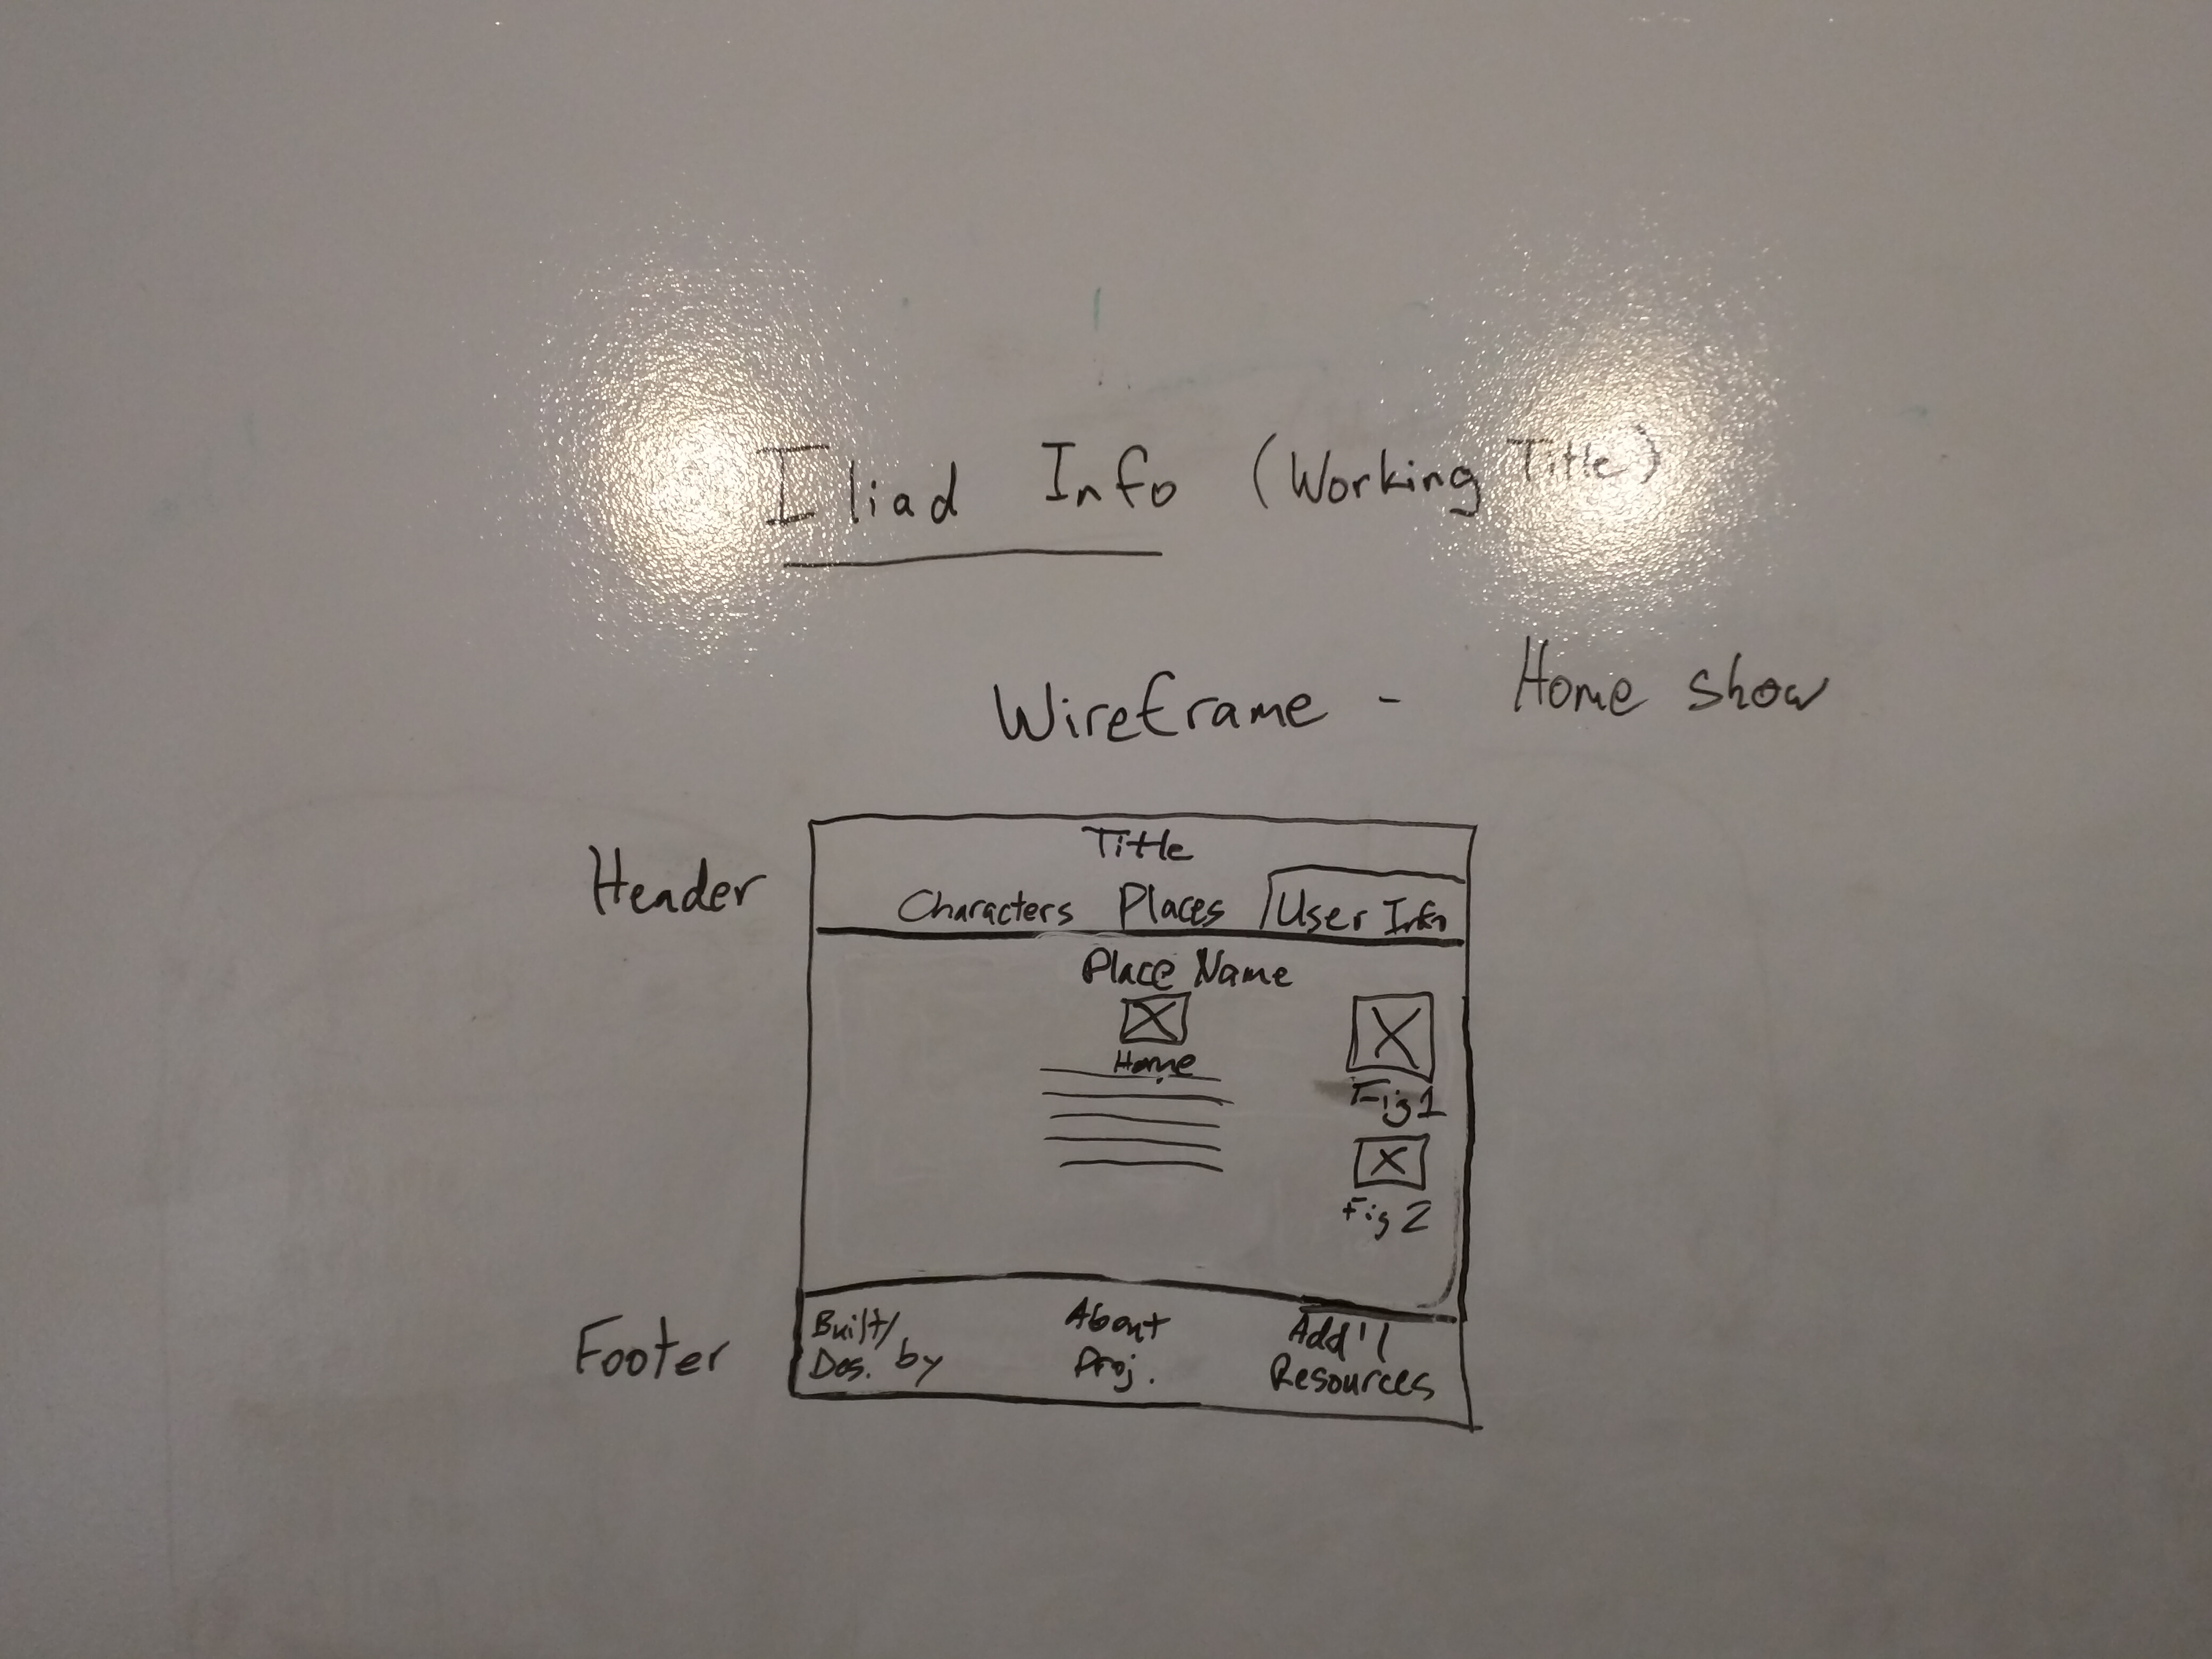 Iliad Info (Working Title)
Wireframe - Home show
Header
Title
Characters Places User Info
Place Name
Home
Fig 1
Fig 2
Footer
Built/
Des. by
About
Proj.
Add'l
Resources